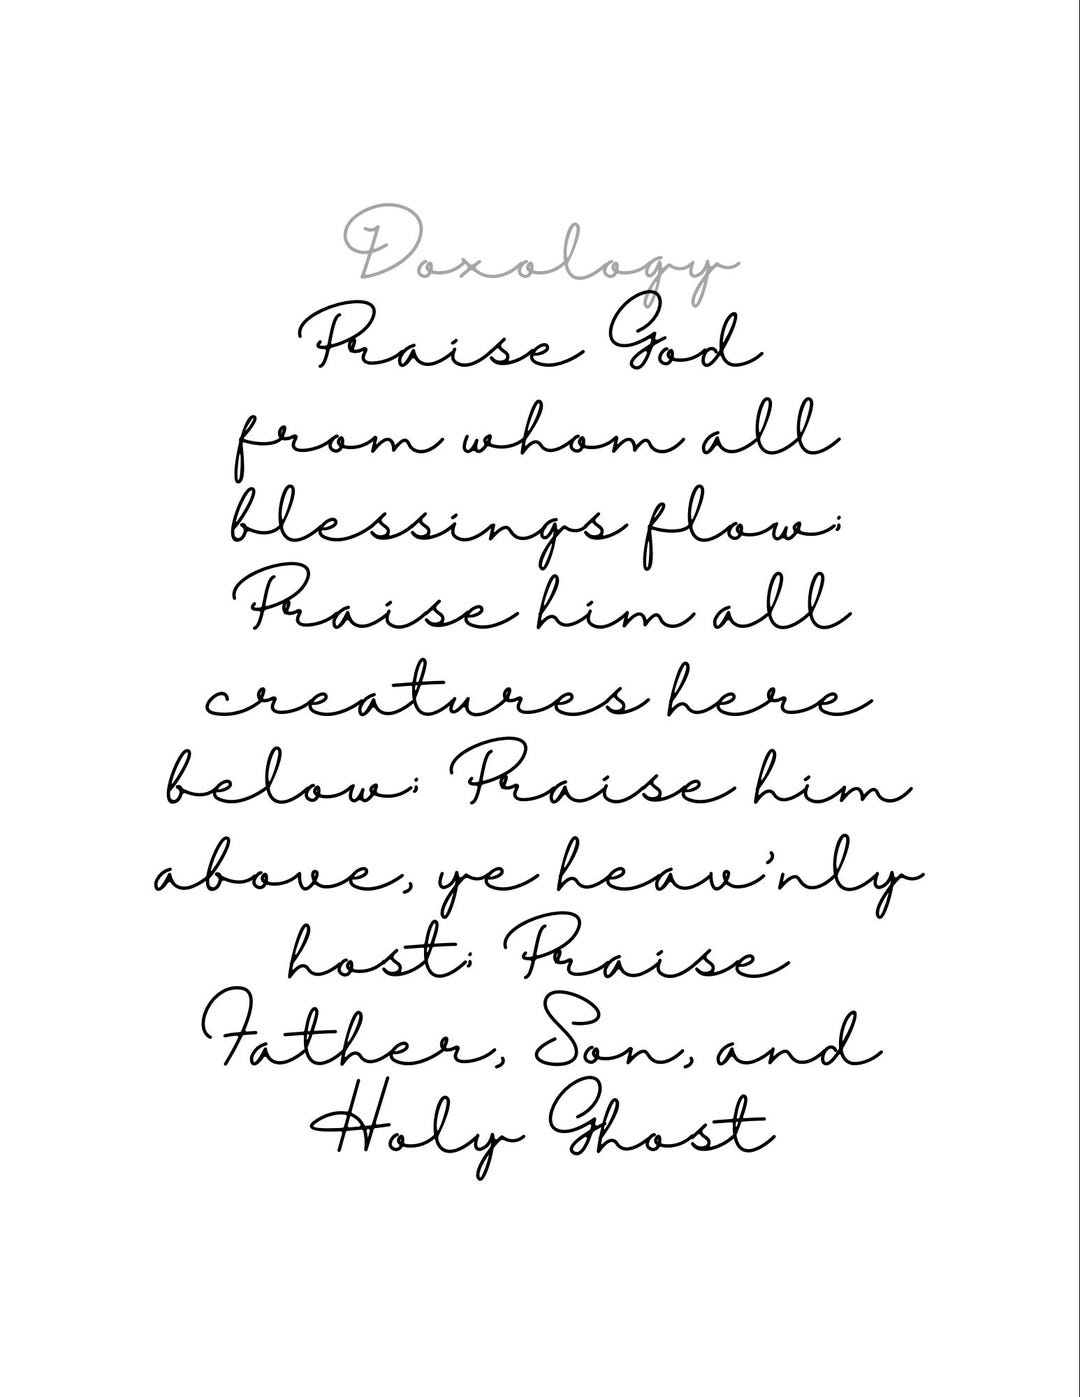 Doxology
Praise God
from whom all
blessings flow;
Praise him all
creatures here
below; Praise him
above, ye heav'nly
host; Praise
Father, Son, and
Holy Ghost